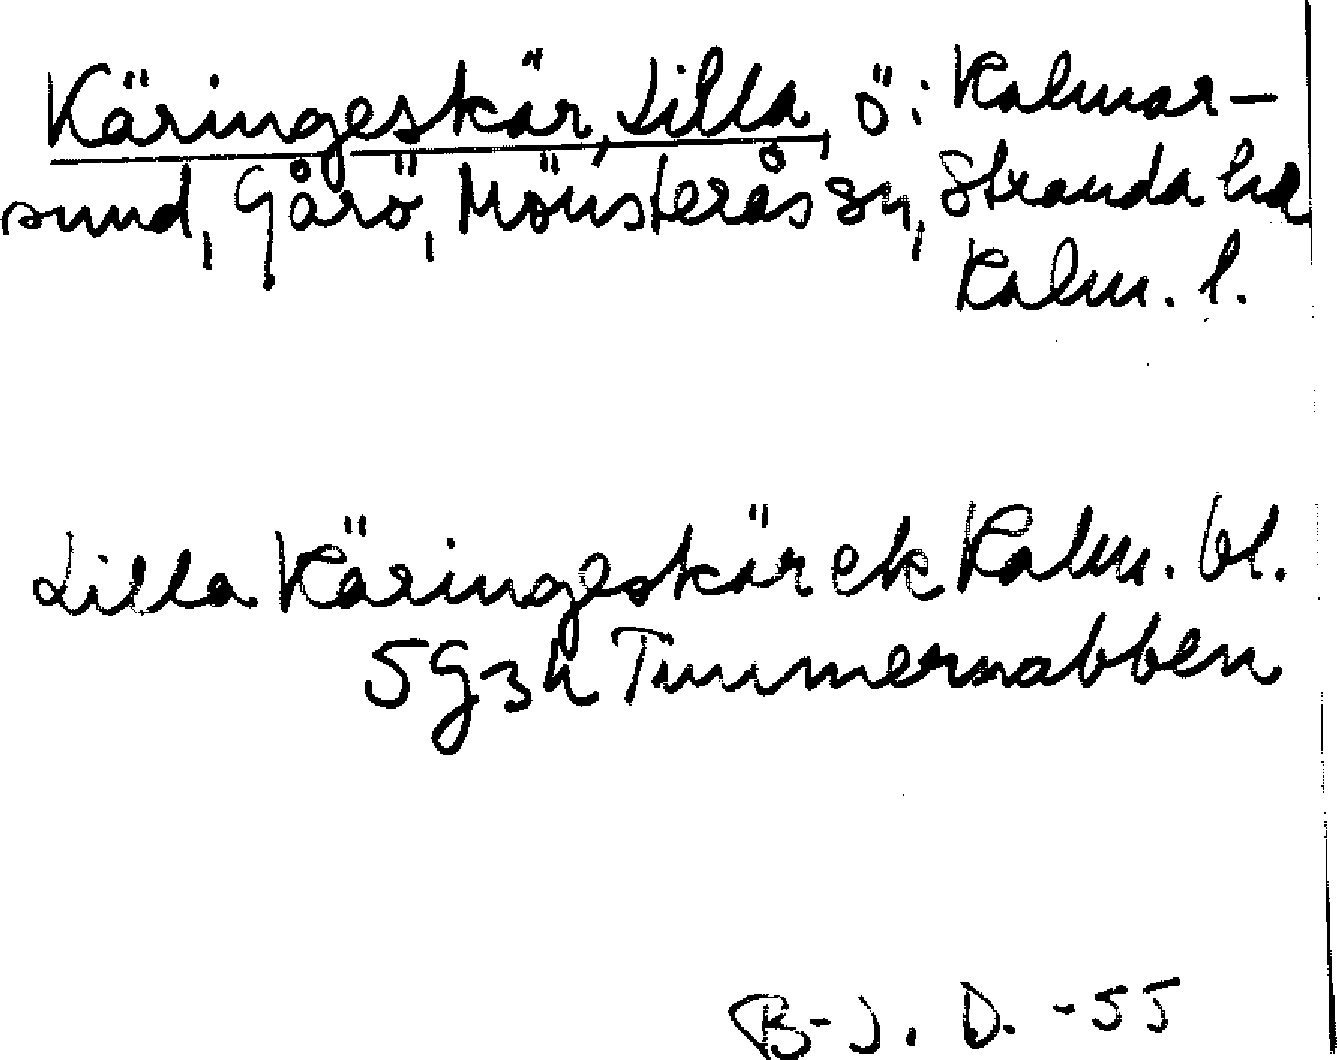 Käringeskär, Lilla, ö: Kalmar-
sund, Gårö, Mönsterås sn, Stranda hd
Kalm. l.
Lilla Käringeskär ek Kalm. bl.
5G3h Timmernabben
B-J. D. -55